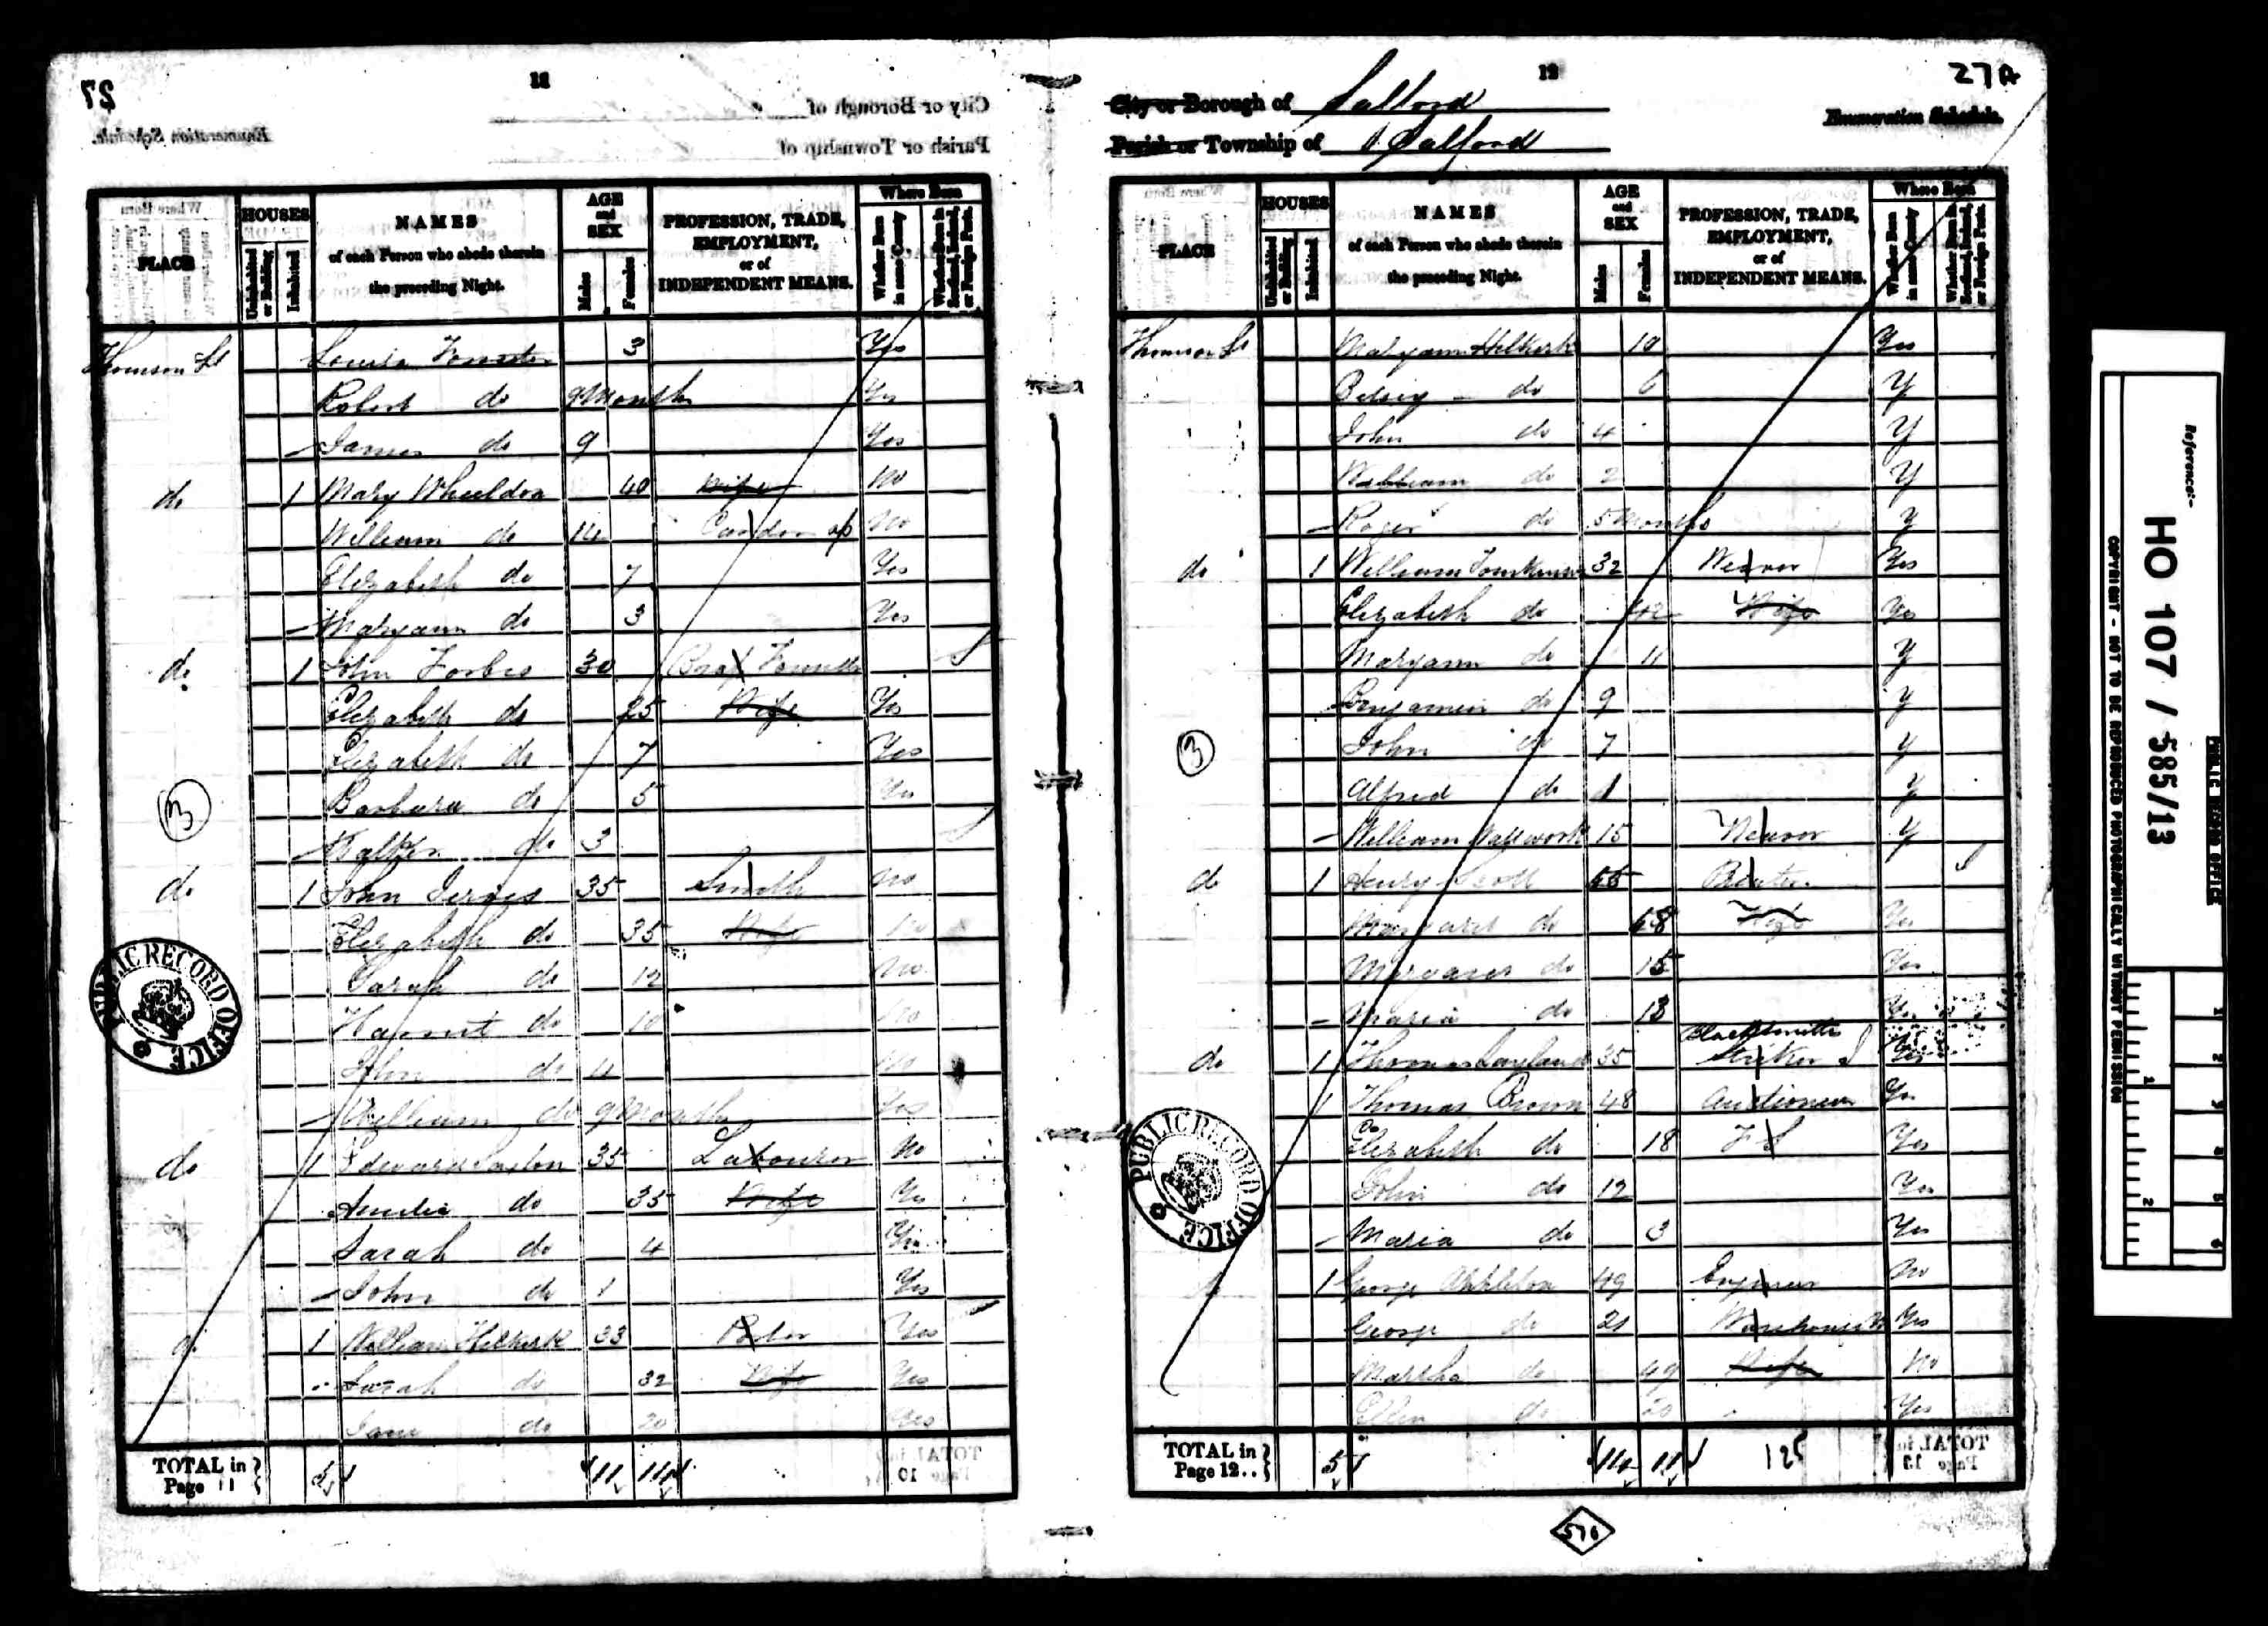 27
11
City or Borough of
Parish or Township of
Enumeration Schedule.
PLACE
HOUSES
Uninhabited or Building
Inhabited
NAMES
of each Person who abode therein
the preceding Night.
AGE
and
SEX
Males
Females
PROFESSION, TRADE,
EMPLOYMENT,
or of
INDEPENDENT MEANS.
Where Born
Whether Born in same County
Whether Born in Scotland, Ireland, or Foreign Parts.
Thomson St Louisa 3 Yes
Robert do 9 Months Yes
James do 9 Yes
do 1 Mary Wheeldon 40 Wife No
William do 14 No
Elizabeth do 7 Yes
Maryann do 3 Yes
do 1 John Forbes 30 S
Elizabeth do 25 Wife Yes
Elizabeth do 7 Yes
Barbara do 5 Yes
3
Walker do 3
do 1 John Jervis 35 Smith No
Elizabeth do 35 Wife No
Sarah do 12 No
Harriet do 10 No
John do 4 No
William do 9 Months Yes
do 1 Edward 35 Labourer No
Amelia do 35 Wife Yes
Sarah do 4 Yes
John do 1 Yes
do 1 William Hilkirk 33 Yes
Sarah do 32 Wife Yes
Jane do 20 Yes
PUBLIC RECORD OFFICE
TOTAL in
Page 11 5 11 14
TOTAL in
Page 10
12
27A
City or Borough of Salford
Parish or Township of Salford
Enumeration Schedule.
PLACE
HOUSES
Uninhabited or Building
Inhabited
NAMES
of each Person who abode therein
the preceding Night.
AGE
and
SEX
Males
Females
PROFESSION, TRADE,
EMPLOYMENT,
or of
INDEPENDENT MEANS.
Where Born
Whether Born in same County
Whether Born in Scotland, Ireland, or Foreign Parts.
Thomson St Maryann Hilkirk 10 Yes
Betsy do 6 Y
John do 4 Y
William do 2 Y
Roger do 5 Months Y
do 1 William Tomkinson 32 Weaver Yes
Elizabeth do Wife Yes
Maryann do 11 Y
Benjamin do 9 Y
John do 7 Y
3
Alfred do 1 Y
William Wallwork 15 Weaver Y
do 1 Henry Scott S
Margaret do Wife Yes
Margaret do 15 Yes
Maria do 13 Yes
Blacksmith
do 1 Thomas 35 Striker Yes
1 Thomas Brown 48 Auctioneer Yes
Elizabeth do 18 F S Yes
John do 12 Yes
Maria do 3 Yes
1 George Appleton 49 Engineer No
George do 20 Yes
Martha do 49 Wife No
Ellen do 20 Yes
PUBLIC RECORD OFFICE
TOTAL in
Page 12.. 5 14 11 125
TOTAL in
Page 13
576
Reference:-
HO 107 / 585/13
PUBLIC RECORD OFFICE
COPYRIGHT - NOT TO BE REPRODUCED PHOTOGRAPHICALLY WITHOUT PERMISSION
1
2
1
2
3
4
5
6